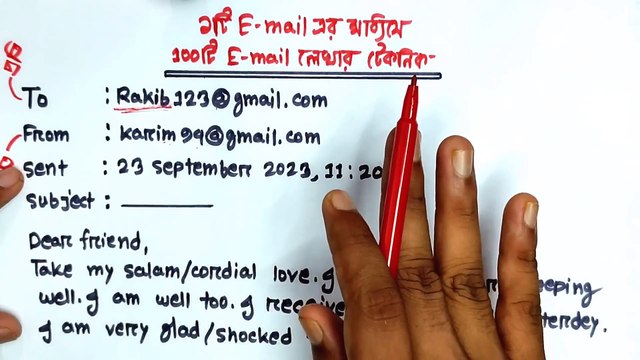 ১টি E-mail এর মাধ্যমে
১০০টি E-mail লেখার টেকনিক-
To : Rakib123@gmail.com
From : karim99@gmail.com
Sent : 23 September 2023, 11:20
Subject :
Dear friend,
Take my salam/cordial love. I keeping
well. I am well too. I receive yesterday.
I am very glad/shocked